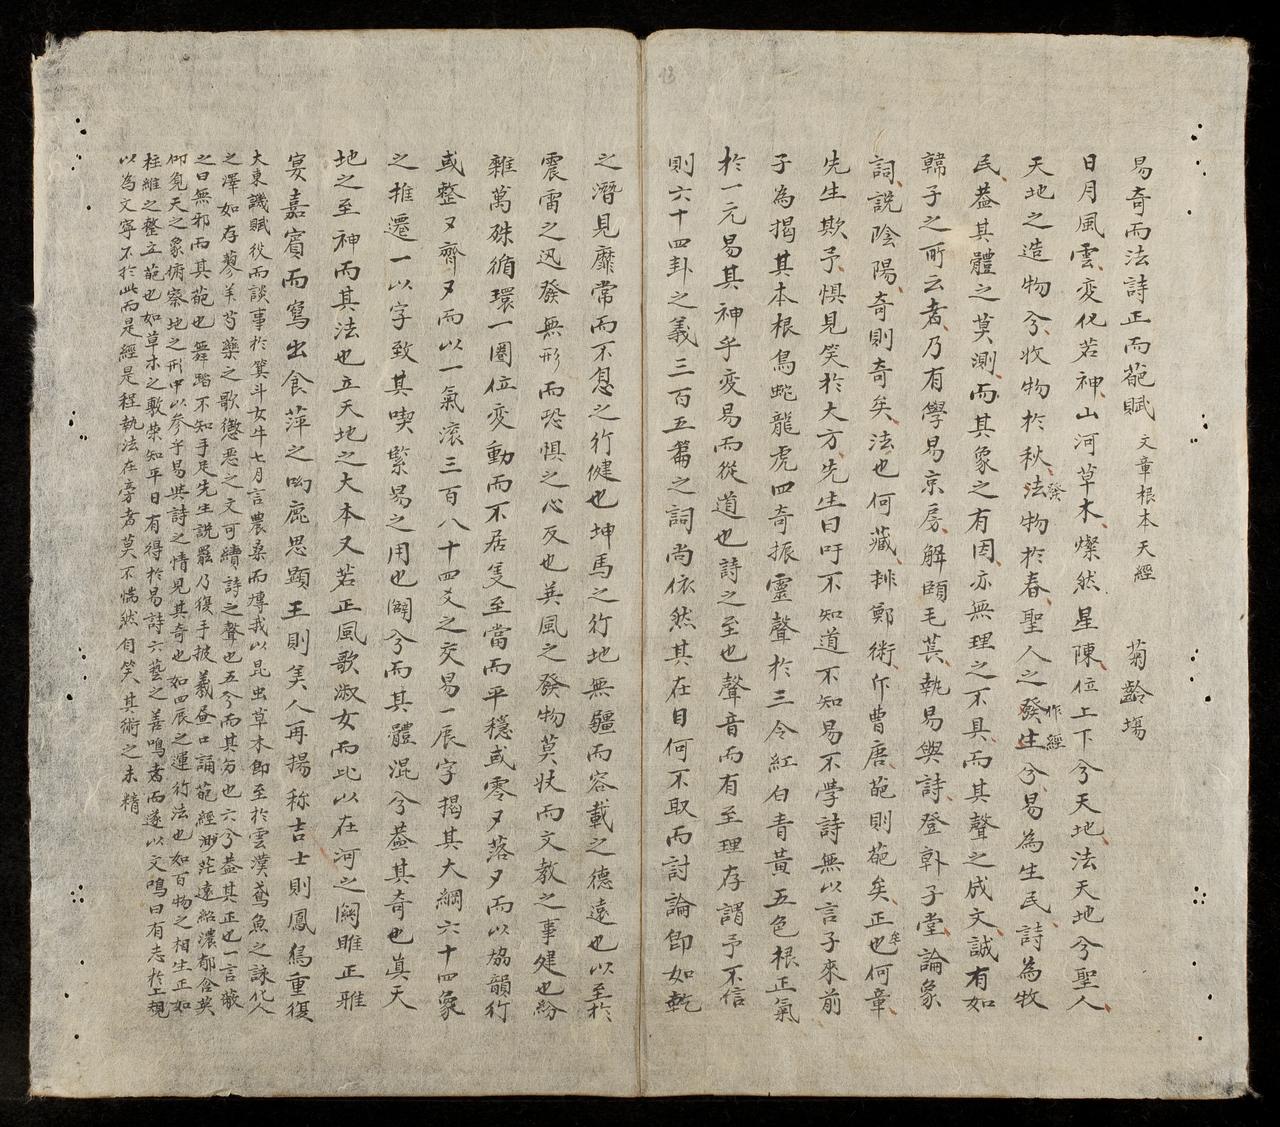 易奇而法詩正而葩賦 文章根本天經 菊齡塲
日月風雲変化若神山河草木燦然星陳位上下兮天地法天地兮聖人
天地之造物兮收物於秋法物於春聖人之發生兮易為生民詩為牧
發 作經
民葢其體之莫測而其象之有因亦無理之不具而其聲之成文誠有如
韓子之所云者乃有學易京房解頤毛萇執易與詩登韓子堂論象
詞說陰陽奇則奇矣法也何藏排鄭衛斥曹唐葩則葩矣正也何章
先生欺予惧見笑於大方先生曰吁不知道不知易不學詩無以言子來前
子為揭其本根鳥蛇龍虎四奇振靈聲於三令紅白青黃五色根正氣
於一元易其神乎変易而從道也詩之至也聲音而有至理存謂予不信
則六十四卦之義三百五篇之詞尚依然其在目何不取而討論即如乾
之潛見靡常而不息之行健也坤馬之行地無疆而容載之德遠也以至於
震雷之迅發無形而恐惧之心反也巽風之發物莫狀而文教之事健也紛
雜萬殊循環一圈位変動而不居隻至當而平穩或零又落又而以協韻行
或整又齊又而以一氣滚三百八十四爻之交易一辰字揭其大綱六十四象
之推遷一以字致其喫緊易之用也闢兮而其體混兮葢其奇也眞天
地之至神而其法也立天地之大本又若正風歌淑女而比以在河之關雎正雅
宴嘉賓而寫出食萍之呦鹿思顯王則美人再揚称吉士則鳳鳥重復
大東譏賦役而談事於箕斗女牛七月言農桑而慱我以昆虫草木即至於雲漢鳶魚之詠化人
之澤如存蓼羊芍藥之歌懲恶之文可續詩之聲也五兮而其旨也六兮葢其正也一言蔽
之曰無邪而其葩也舞蹈不知手足先生說罷乃復手披羲昼口誦葩經渺茫遠紹濃郁含英
仰覓天之象俯察地之形中以參乎易與詩之情見其奇也如四辰之運行法也如百物之相生正如
柱維之整立葩也如草木之敷荣知平日有得於易詩六藝之善鳴者而遂以文鳴曰有志於工規
以為文寧不於此而是經是程執法在旁者莫不惴然自笑其術之未精